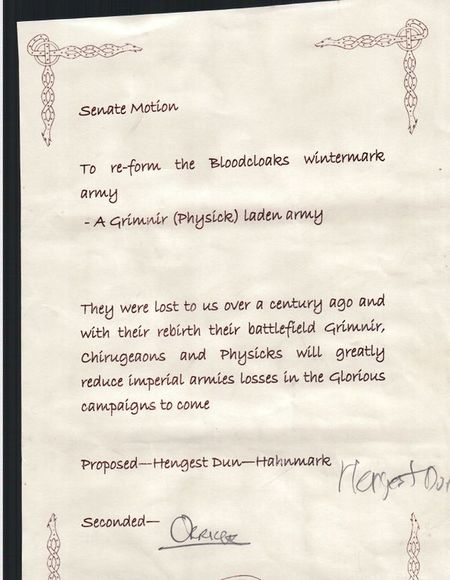 Senate Motion
To re-form the Bloodcloaks wintermark
army
- A Grimnir (Physick) laden army
They were lost to us over a century ago and
with their rebirth their battlefield Grimnir,
Chirugeaons and Physicks will greatly
reduce imperial armies losses in the Glorious
campaigns to come
Proposed---Hengest Dun—Hahnmark
Hengest Dun
Seconded—